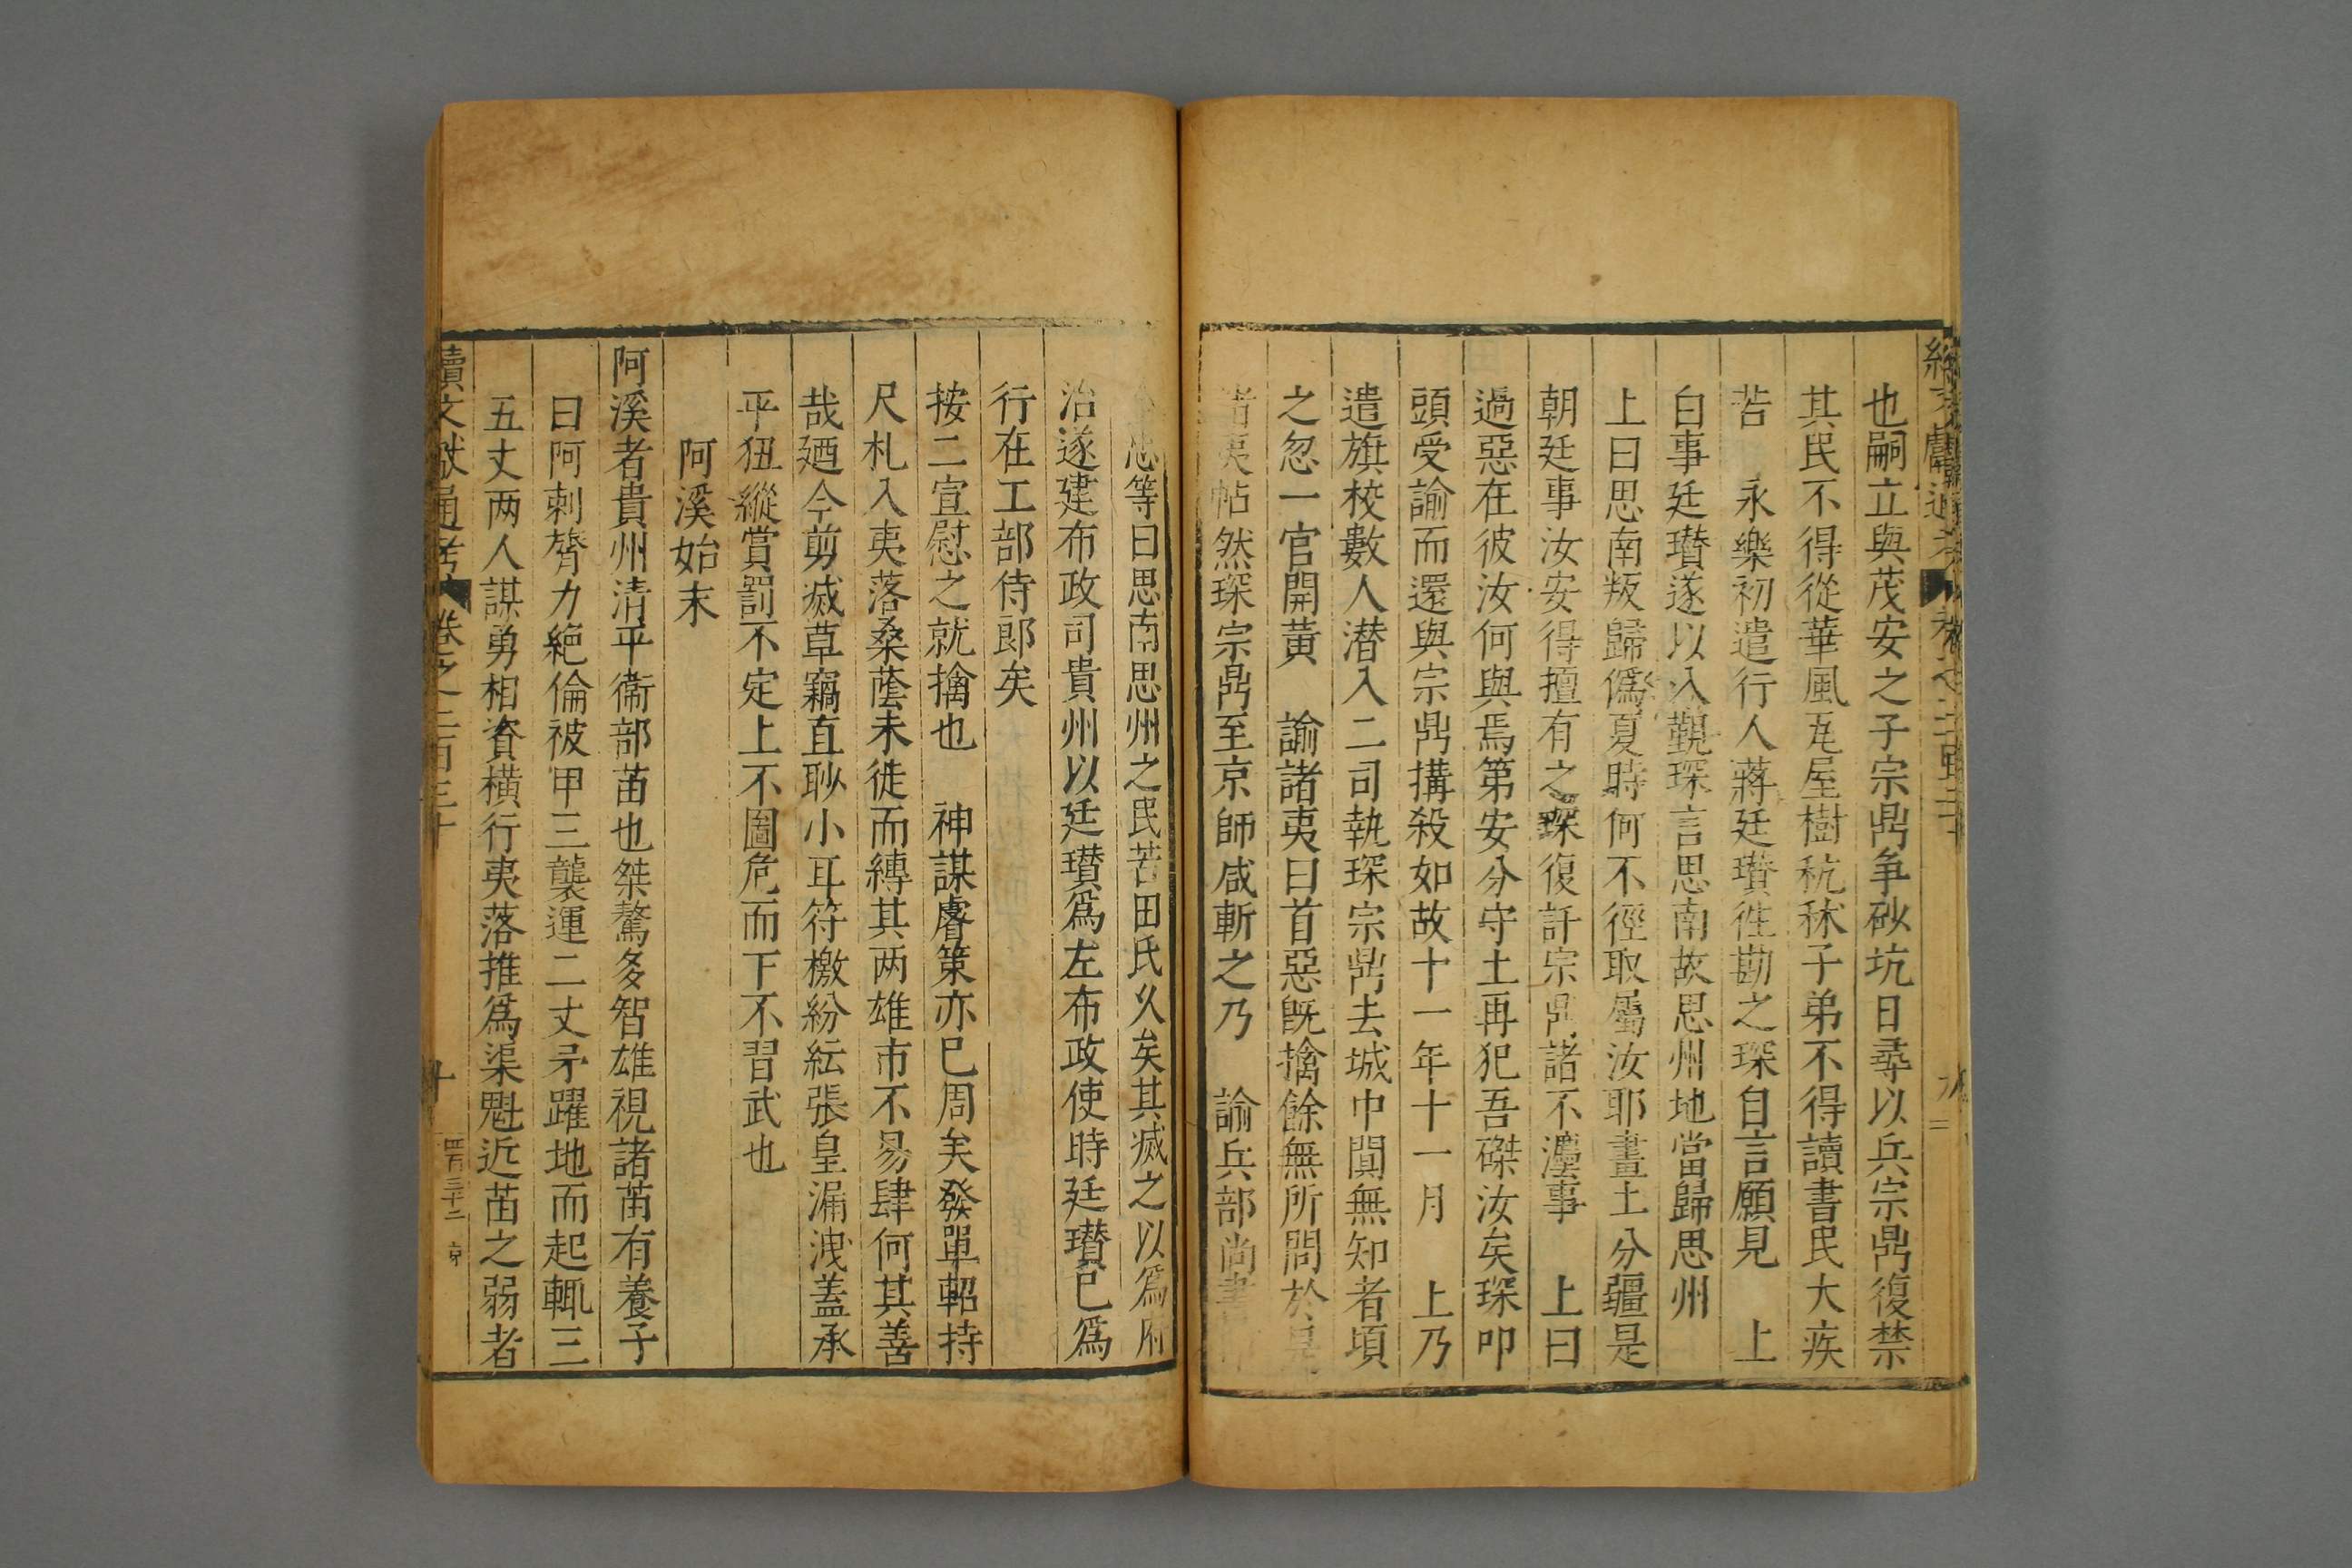 續文獻通考 卷之二百三十
也嗣立與茂安之子宗鼎争砂坑日尋以兵宗鼎復禁
其民不得從華風瓦屋樹秔秫子弟不得讀書民大疾
苦 永樂初遣行人蔣廷瓚徃勘之琛自言願見 上
白事廷瓚遂以入觀琛言思南故思州地當歸思州
上曰思南叛歸僞夏時何不徑取屬汝耶畫土分疆是
朝廷事汝安得擅有之琛復訐宗鼎諸不灋事 上曰
過惡在彼汝何與焉第安分守土再犯吾磔汝矣琛叩
頭受諭而還與宗鼎搆殺如故十一年十一月 上乃
遣旗校數人潜入二司執琛宗鼎去城中閴無知者頃
之忽一官開黃 諭諸夷曰首惡旣擒餘無所問於是
諸夷帖然琛宗鼎至京師咸斬之乃 諭兵部尚書
忠等曰思南思州之民苦田氏乆矣其滅之以爲府
治遂建布政司貴州以廷瓚爲左布政使時廷瓚已爲
行在工部侍郎矣
按二宣慰之就擒也 神謀睿策亦已周矣發單軺持
尺札入夷落桑蔭未徙而縛其两雄市不易肆何其善
哉廼今剪滅草竊直耿小耳符檄紛紜張皇漏洩盖承
平狃縱賞罰不定上不圖危而下不習武也
阿溪始末
阿溪者貴州清平衞部苗也桀驁多智雄視諸苗有養子
曰阿剌膂力絶倫被甲三襲運二丈矛躍地而起輒三
五丈两人謀勇相資橫行夷落推爲渠魁近苗之弱者
續文献通考 卷之二百三十 十 四百三十二 京